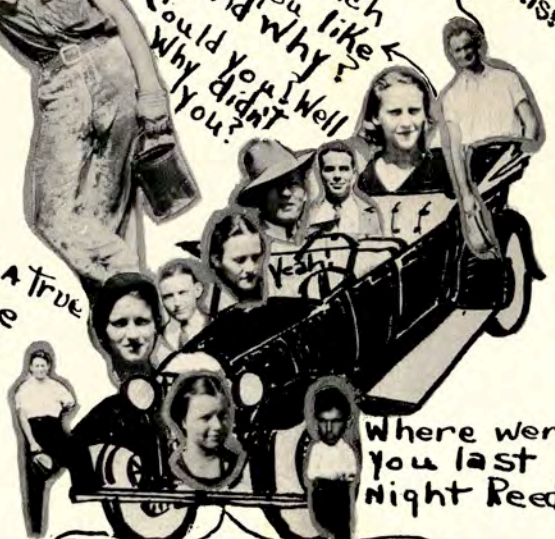 you like
why?
Could you? Well
Why didn't
you?
Yeah!
A True
Where wer
you last
Night Reed